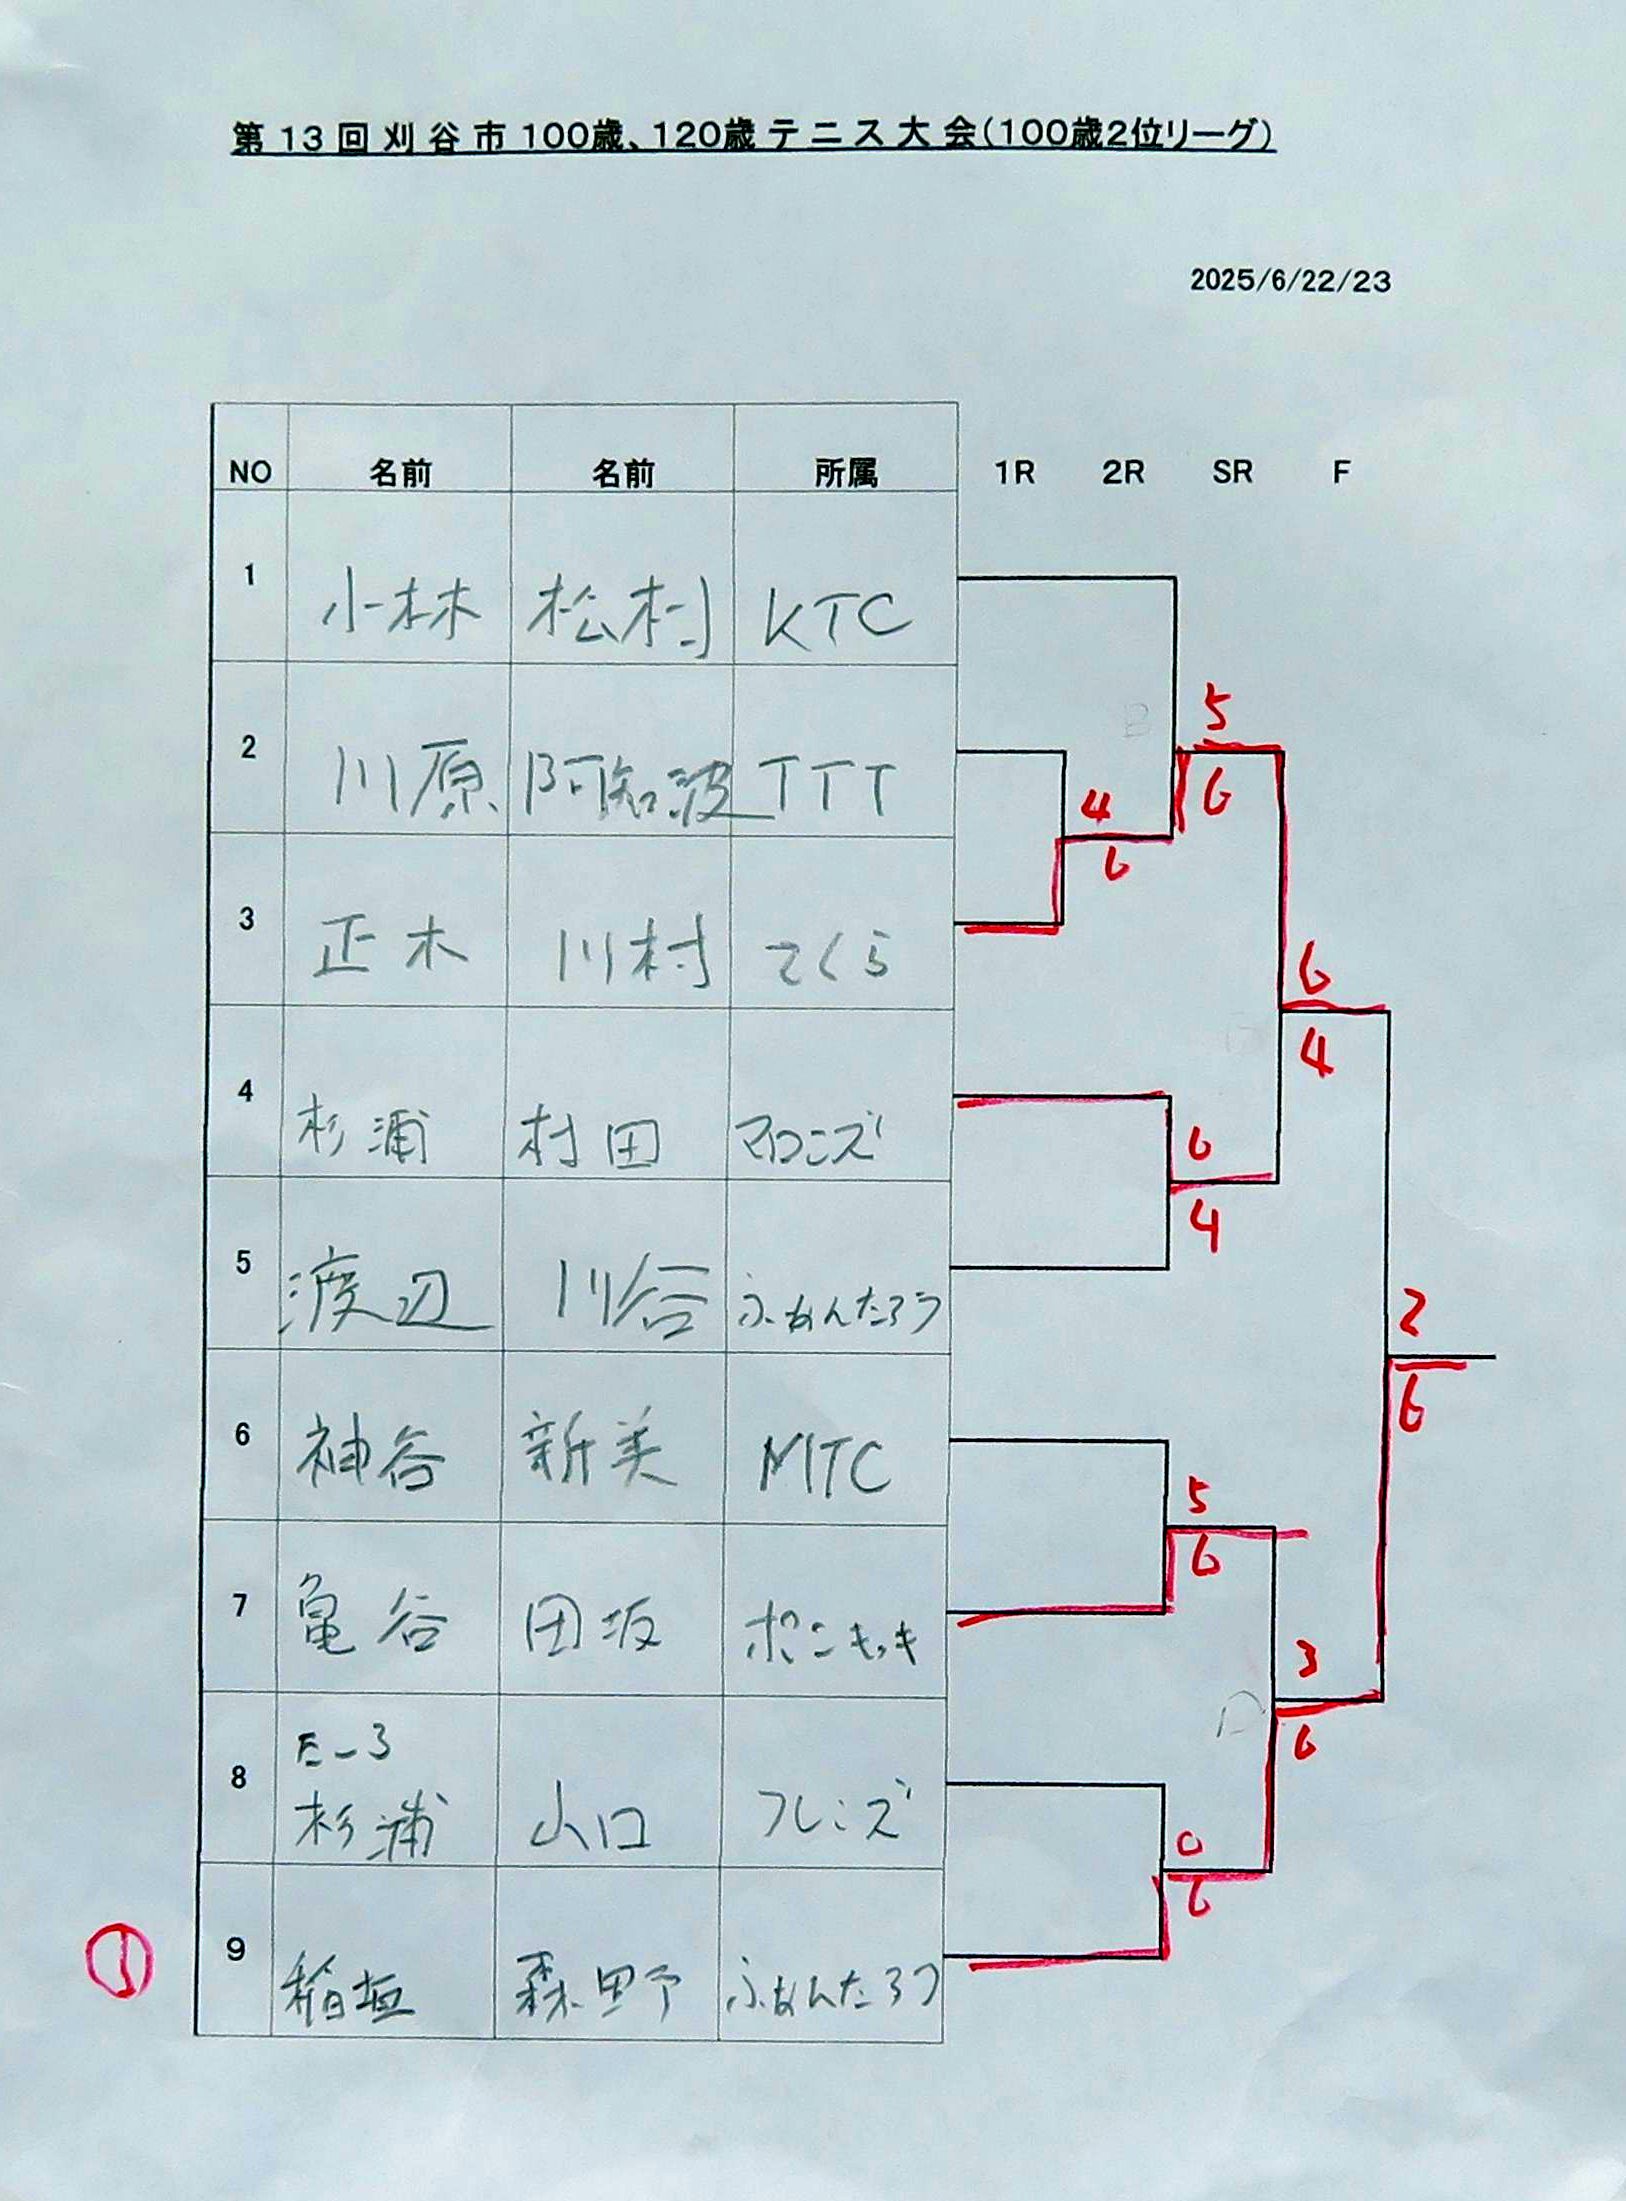 第13回刈谷市100歳、120歳テニス大会(100歳2位リーグ)
2025/6/22/23
NO 名前 名前 所属 1R 2R SR F
1 小林 松村 KTC
2 川原 阿知波 TTT
3 正木 川村 さくら
4 杉浦 村田 マロニズ
5 渡辺 川谷 ふぁんたろう
6 神谷 新美 MTC
7 亀谷 田坂 ポンキッキ
E-3
8 杉浦 山口 フレンズ
① 9 稲垣 森田野 ふぁんたろう
5
6
4
6
6
4
6
4
2
6
5
6
3
6
0
6